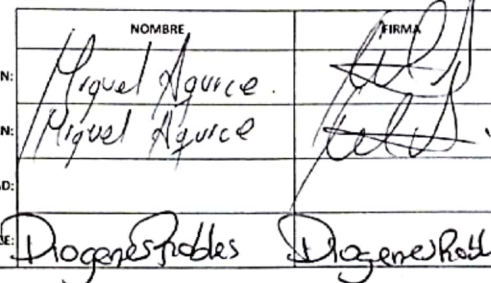 NOMBRE FIRMA
N: Miguel Aguice.
N: Miguel Aguice
AD:
E: Diogenes Robles Diogenes Robl